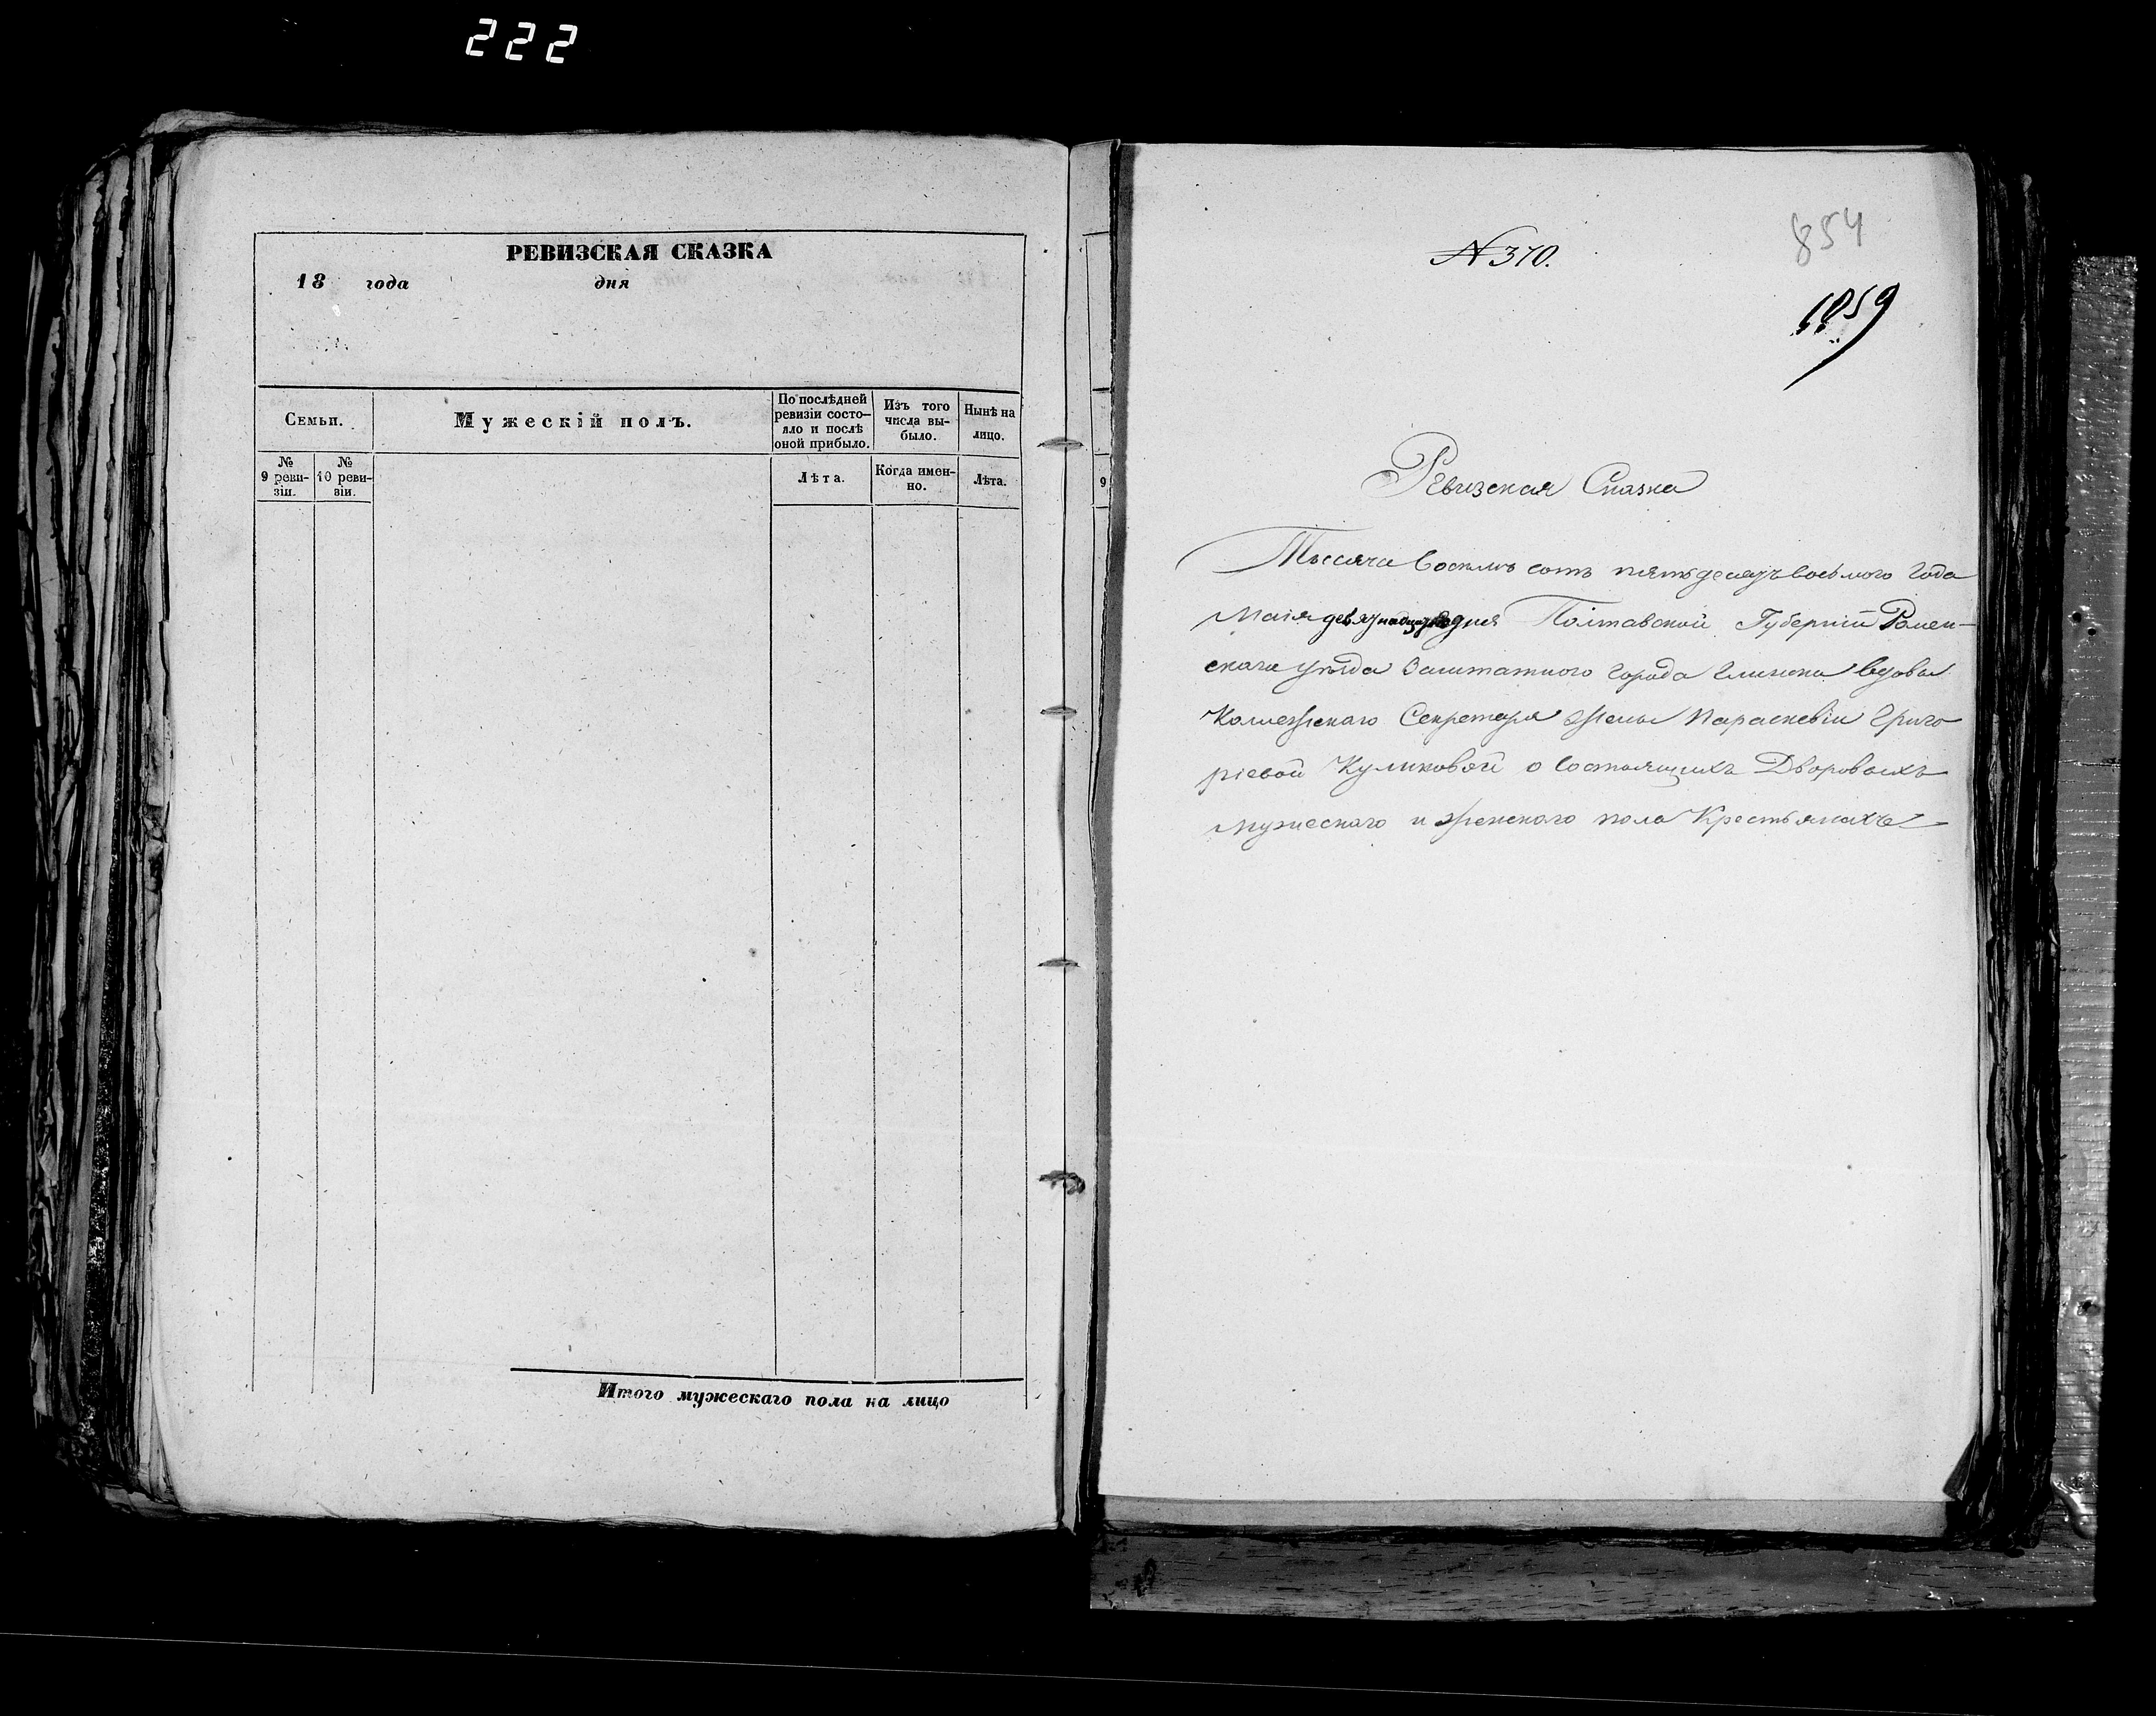 222
РЕВИЗСКАЯ СКАЗКА
18 года дня
Семьи. Мужескій полъ. По послѣдней ревизіи состо-яло и послѣ оной прибыло. Изъ того числа вы-было. Нынѣ на лицо.
№ 9 реви-зіи. № 10 реви-зіи. Лѣта. Когда имен-но. Лѣта.
Итого мужескаго пола на лицо
9
N 370.
854
1859
Ревизская Сказка
Тысяча восемь сотъ пятьдесятъ восьмого Года
Маія девятнадцатаго дня Полтавской Губерніи Ромен-
скаго уѣзда Заштатного города Глинска вдовы
Коллежскаго Секретаря жены Параскевіи Григо
ріевой Куликовой о состоящихъ Дворовыхъ
мужескаго и женскаго пола Крестьянахъ